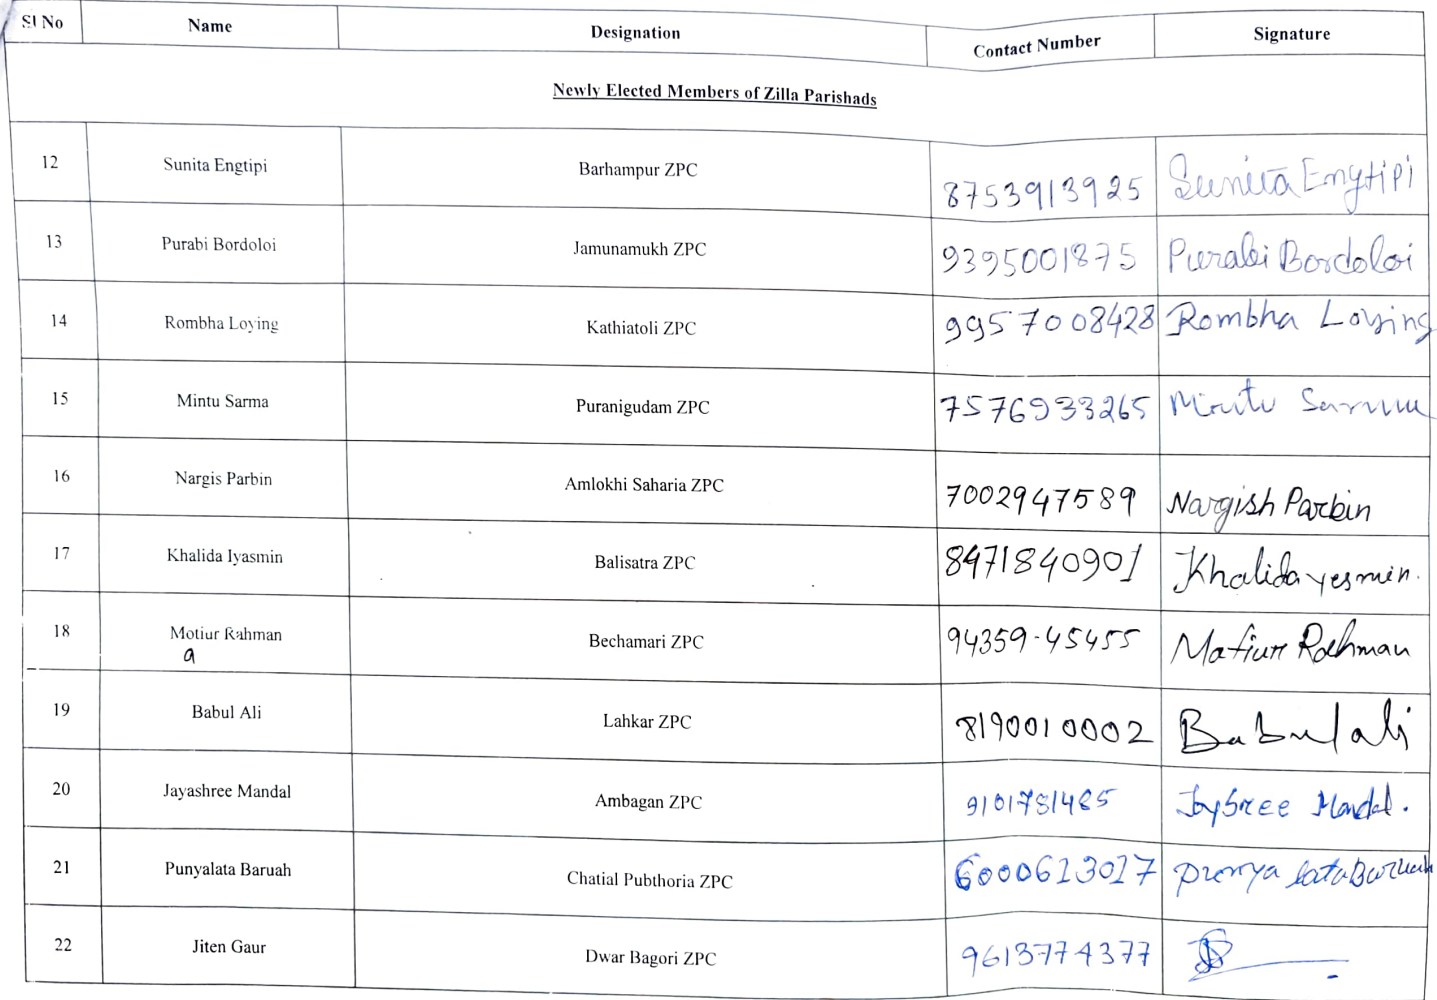 Sl No Name Designation Contact Number Signature
Newly Elected Members of Zilla Parishads
12 Sunita Engtipi Barhampur ZPC 8753913925 Sunita Engtipi
13 Purabi Bordoloi Jamunamukh ZPC 9395001875 Purabi Bordoloi
14 Rombha Loying Kathiatoli ZPC 9957008428 Rombha Loying
15 Mintu Sarma Puranigudam ZPC 7576933265 Mintu Sarma
16 Nargis Parbin Amlokhi Saharia ZPC 7002947589 Nargish Parbin
17 Khalida Iyasmin Balisatra ZPC 8471840901 Khalida yesmin.
18 Motiur Rahman Bechamari ZPC 94359-45455 Matiur Rahman
a
19 Babul Ali Lahkar ZPC 8190010002 Babul ali
20 Jayashree Mandal Ambagan ZPC 9101781485 Joysree Mandal.
21 Punyalata Baruah Chatial Pubthoria ZPC 6000613017 Punya lata Baruah
22 Jiten Gaur Dwar Bagori ZPC 9613774377